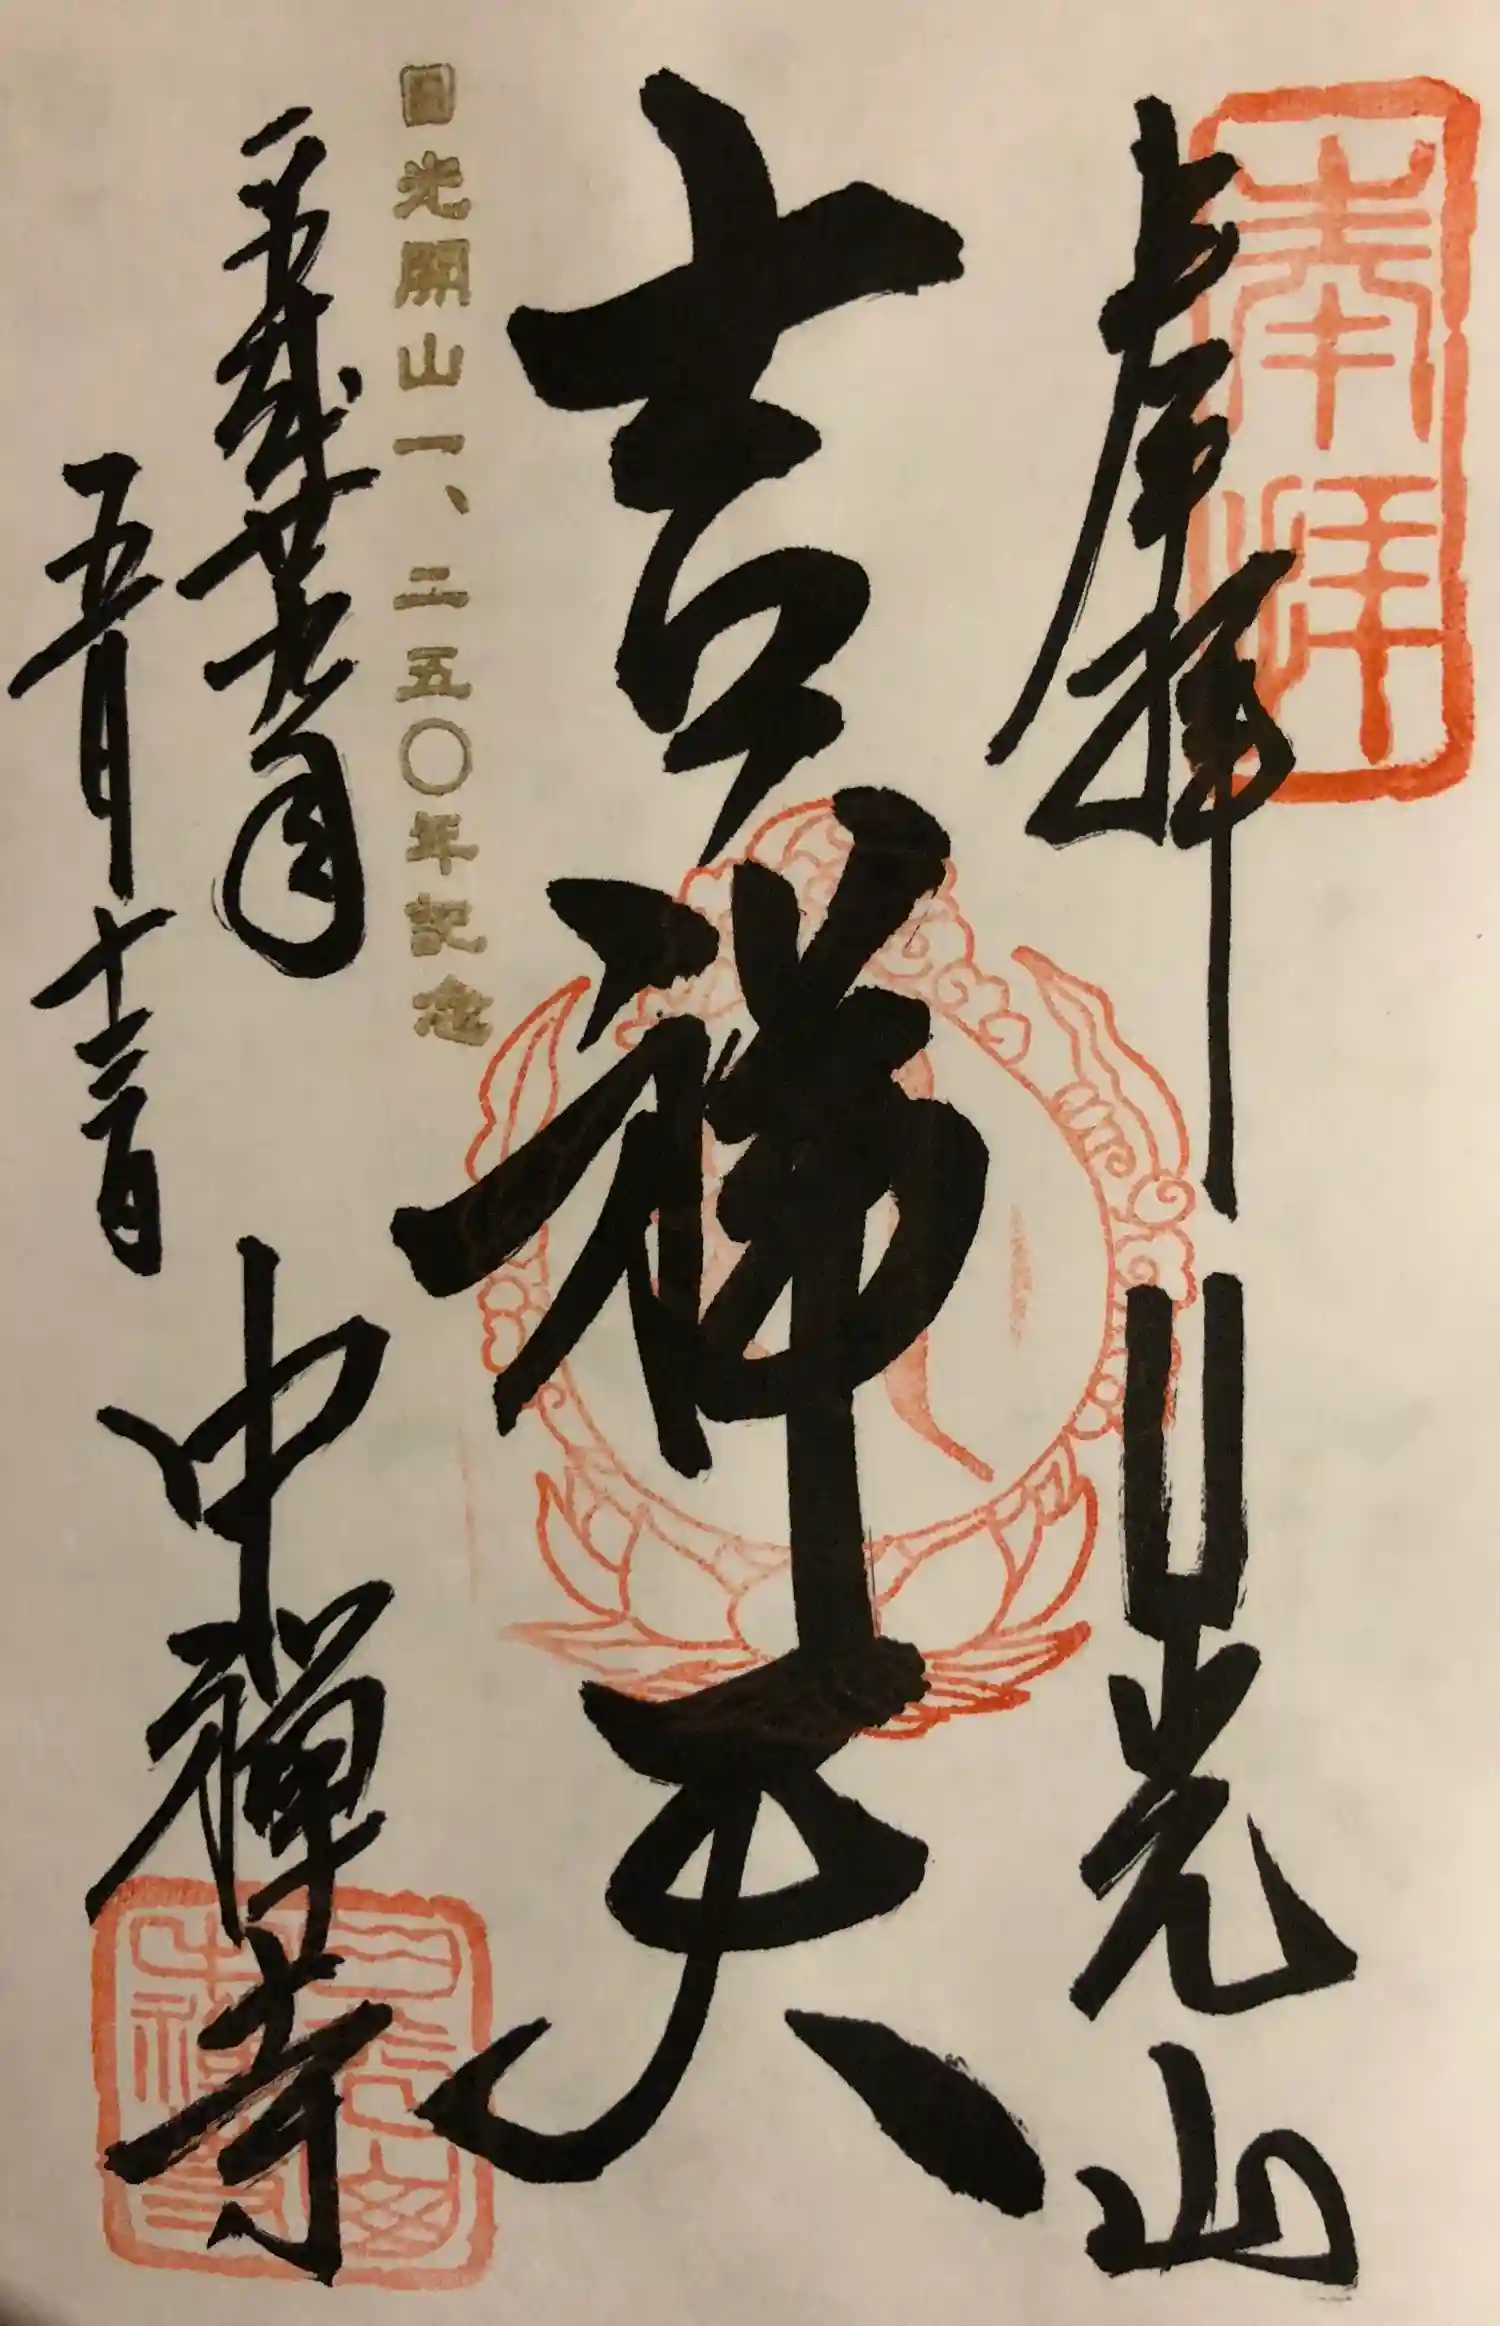 奉拝
虔拝 日光山
吉祥天
日光開山一、二五〇年記念
平成廿九年
五月十三日
中禅寺
日光山
中禅寺